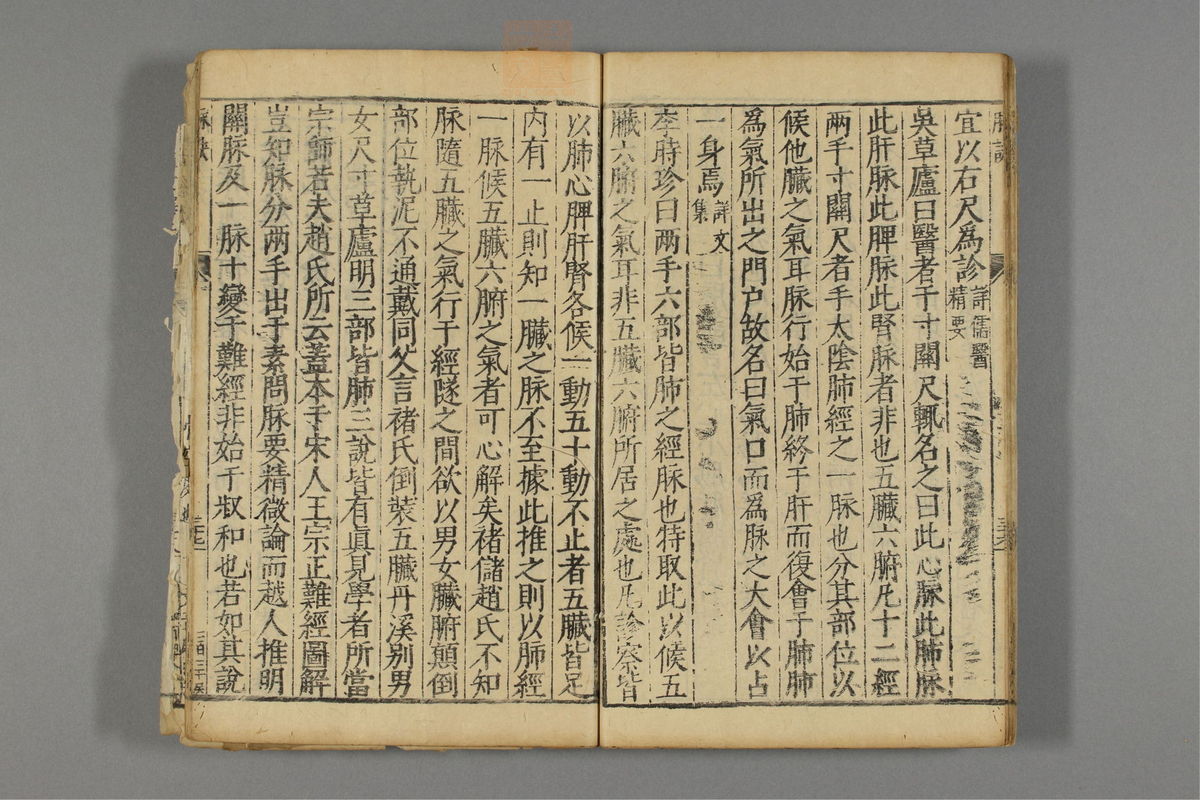 宜以右尺爲診 詳儒醫精要
吳草廬曰醫者于寸關尺輒名之曰此心脉此肺脉
此肝脉此脾脉此腎脉者非也五臟六腑凡十二經
兩手寸關尺者手太陰肺經之一脉也分其部位以
候他臟之氣耳脉行始于肺終于肝而復會于肺肺
爲氣所出之門户故名曰氣口而爲脉之大會以占
一身焉 詳文集
李時珍曰兩手六部皆肺之經脉也特取此以候五
臟六腑之氣耳非五臟六腑所居之處也凡診察皆
以肺心脾肝腎各候一動五十動不止者五臟皆足
内有一止則知一臟之脉不至據此推之則以肺經
一脉候五臟六腑之氣者可心解矣褚儲趙氏不知
脉隨五臟之氣行于經隧之間欲以男女臟腑顛倒
部位執泥不通戴同父言褚氏倒裝五臟丹溪别男
女尺寸草廬明三部皆肺三說皆有眞見學者所當
宗師若夫趙氏所云蓋本于宋人王宗正難經圖解
豈知脉分兩手出于素問脉要精微論而越人推明
關脉及一脉十變于難經非始于叔和也若如其說